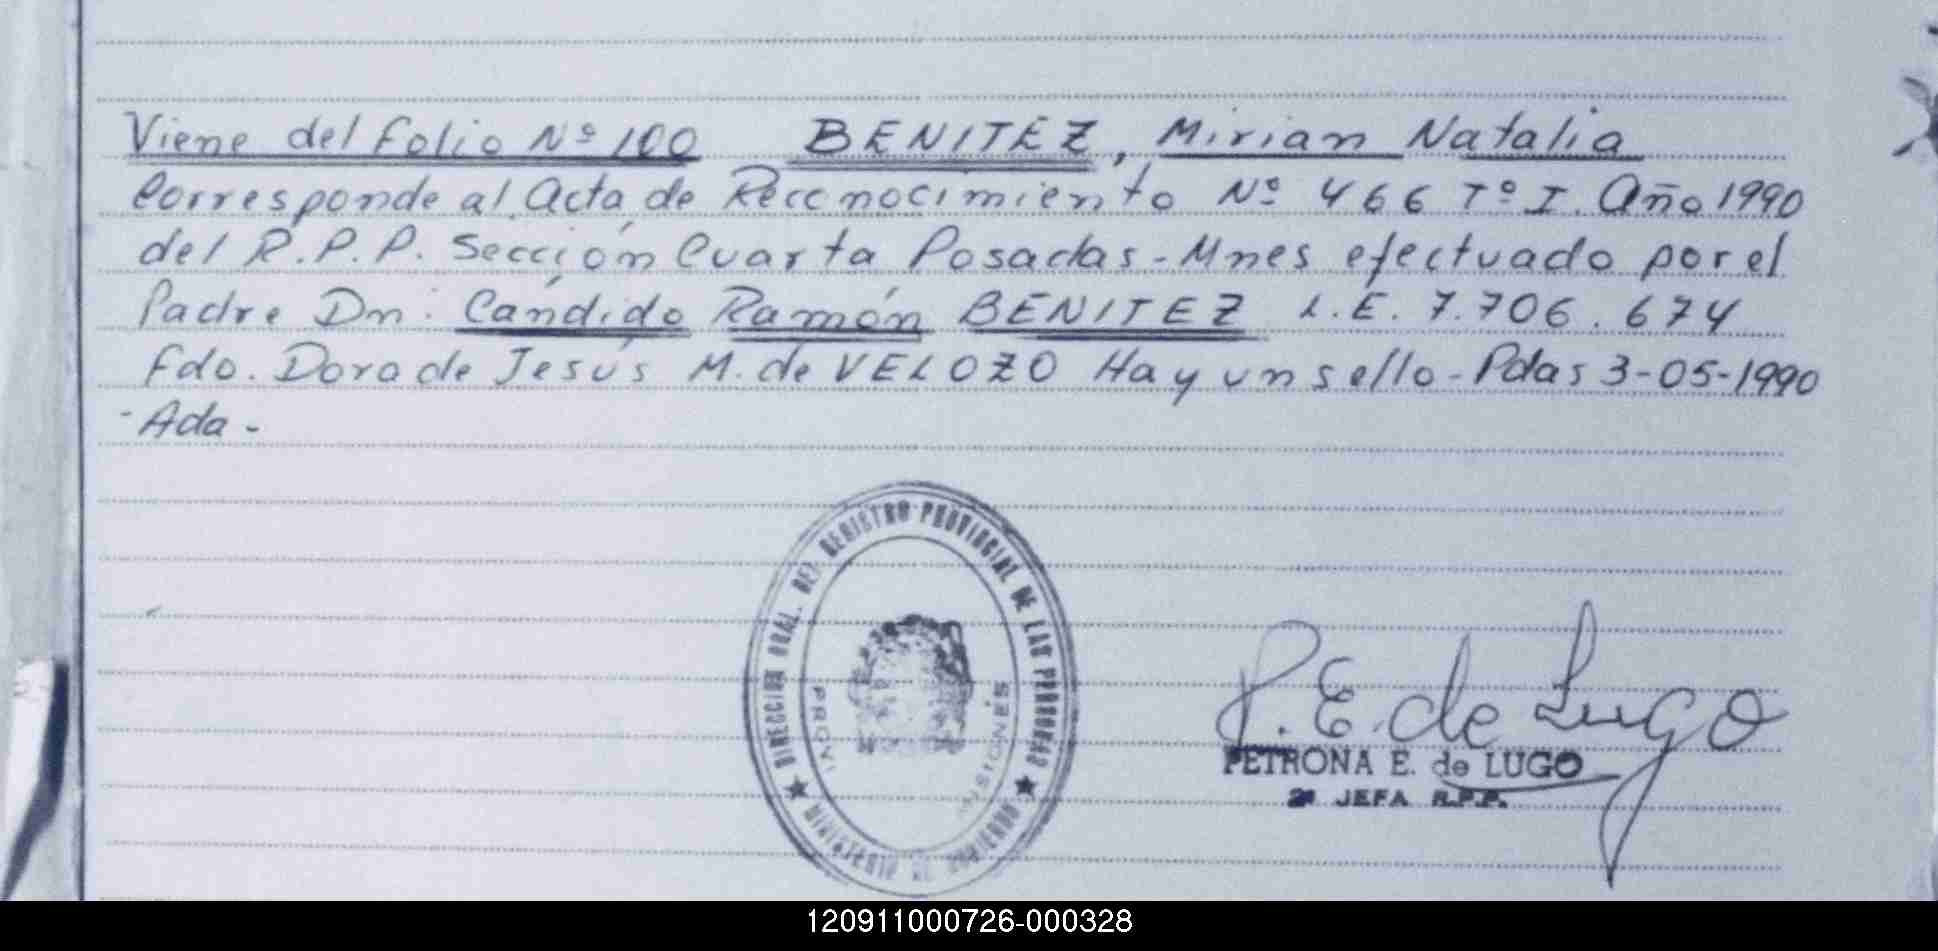 Viene del folio Nº 100 BENITEZ, Mirian Natalia
Corresponde al Acta de Reconocimiento Nº 466 Tº I. Año 1990
del R.P.P. Sección Cuarta Posadas - Mnes efectuado por el
Padre Dn. Cándido Ramón BENITEZ L.E. 7.706.674
Fdo. Dora de Jesús M. de VELOZO Hay un sello - Pdas 3-05-1990
- Ada -
DIRECCION GRAL. DEL REGISTRO PROVINCIAL DE LAS PERSONAS
MINISTERIO DE GOBIERNO
MISIONES
P. E. de Lugo
PETRONA E. de LUGO
2ª JEFA R.P.P.
120911000726-000328